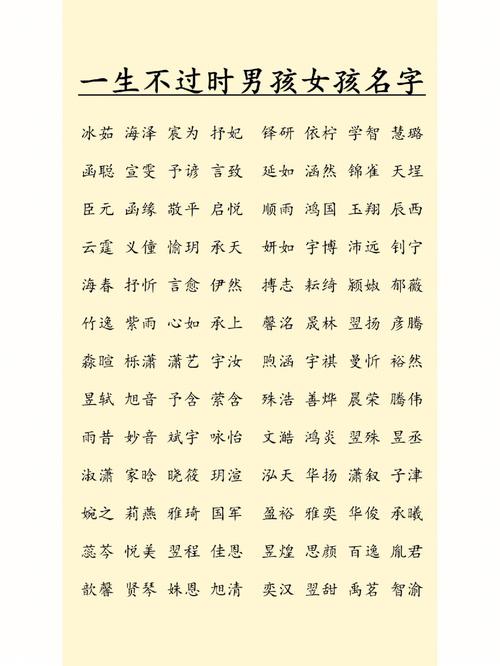 一生不过时男孩女孩名字
冰茹 海泽 宸为 抒妃 铎研 依柠 学智 慧璐
函聪 宣雯 予谚 言致 延如 涵然 锦雀 天埕
臣元 函缘 敬平 启悦 顺雨 鸿国 玉翔 辰西
云霆 义僮 愉玥 承天 妍如 宇博 沛远 钊宁
海春 抒忻 言愈 伊然 搏志 耘绮 颍婌 郁薇
竹逸 紫雨 心如 承上 馨洺 晟林 翌扬 彦腾
淼暄 栎潇 潇艺 宇汝 煦涵 宇祺 曼忻 裕然
昱轼 旭音 予含 萦含 殊浩 善烨 晨荣 腾伟
雨昔 妙音 斌宇 咏怡 文澔 鸿炎 翌殊 昱丞
淑潇 家晗 晓筱 玥渲 泓天 华扬 潇叙 子津
婉之 莉燕 雅琦 国军 盈裕 雅奕 华俊 承曦
蕊芩 悦美 翌程 佳恩 昱煌 思颜 百逸 胤君
歆馨 贤琴 姝恩 旭清 奕汉 翌甜 禹茗 智渝